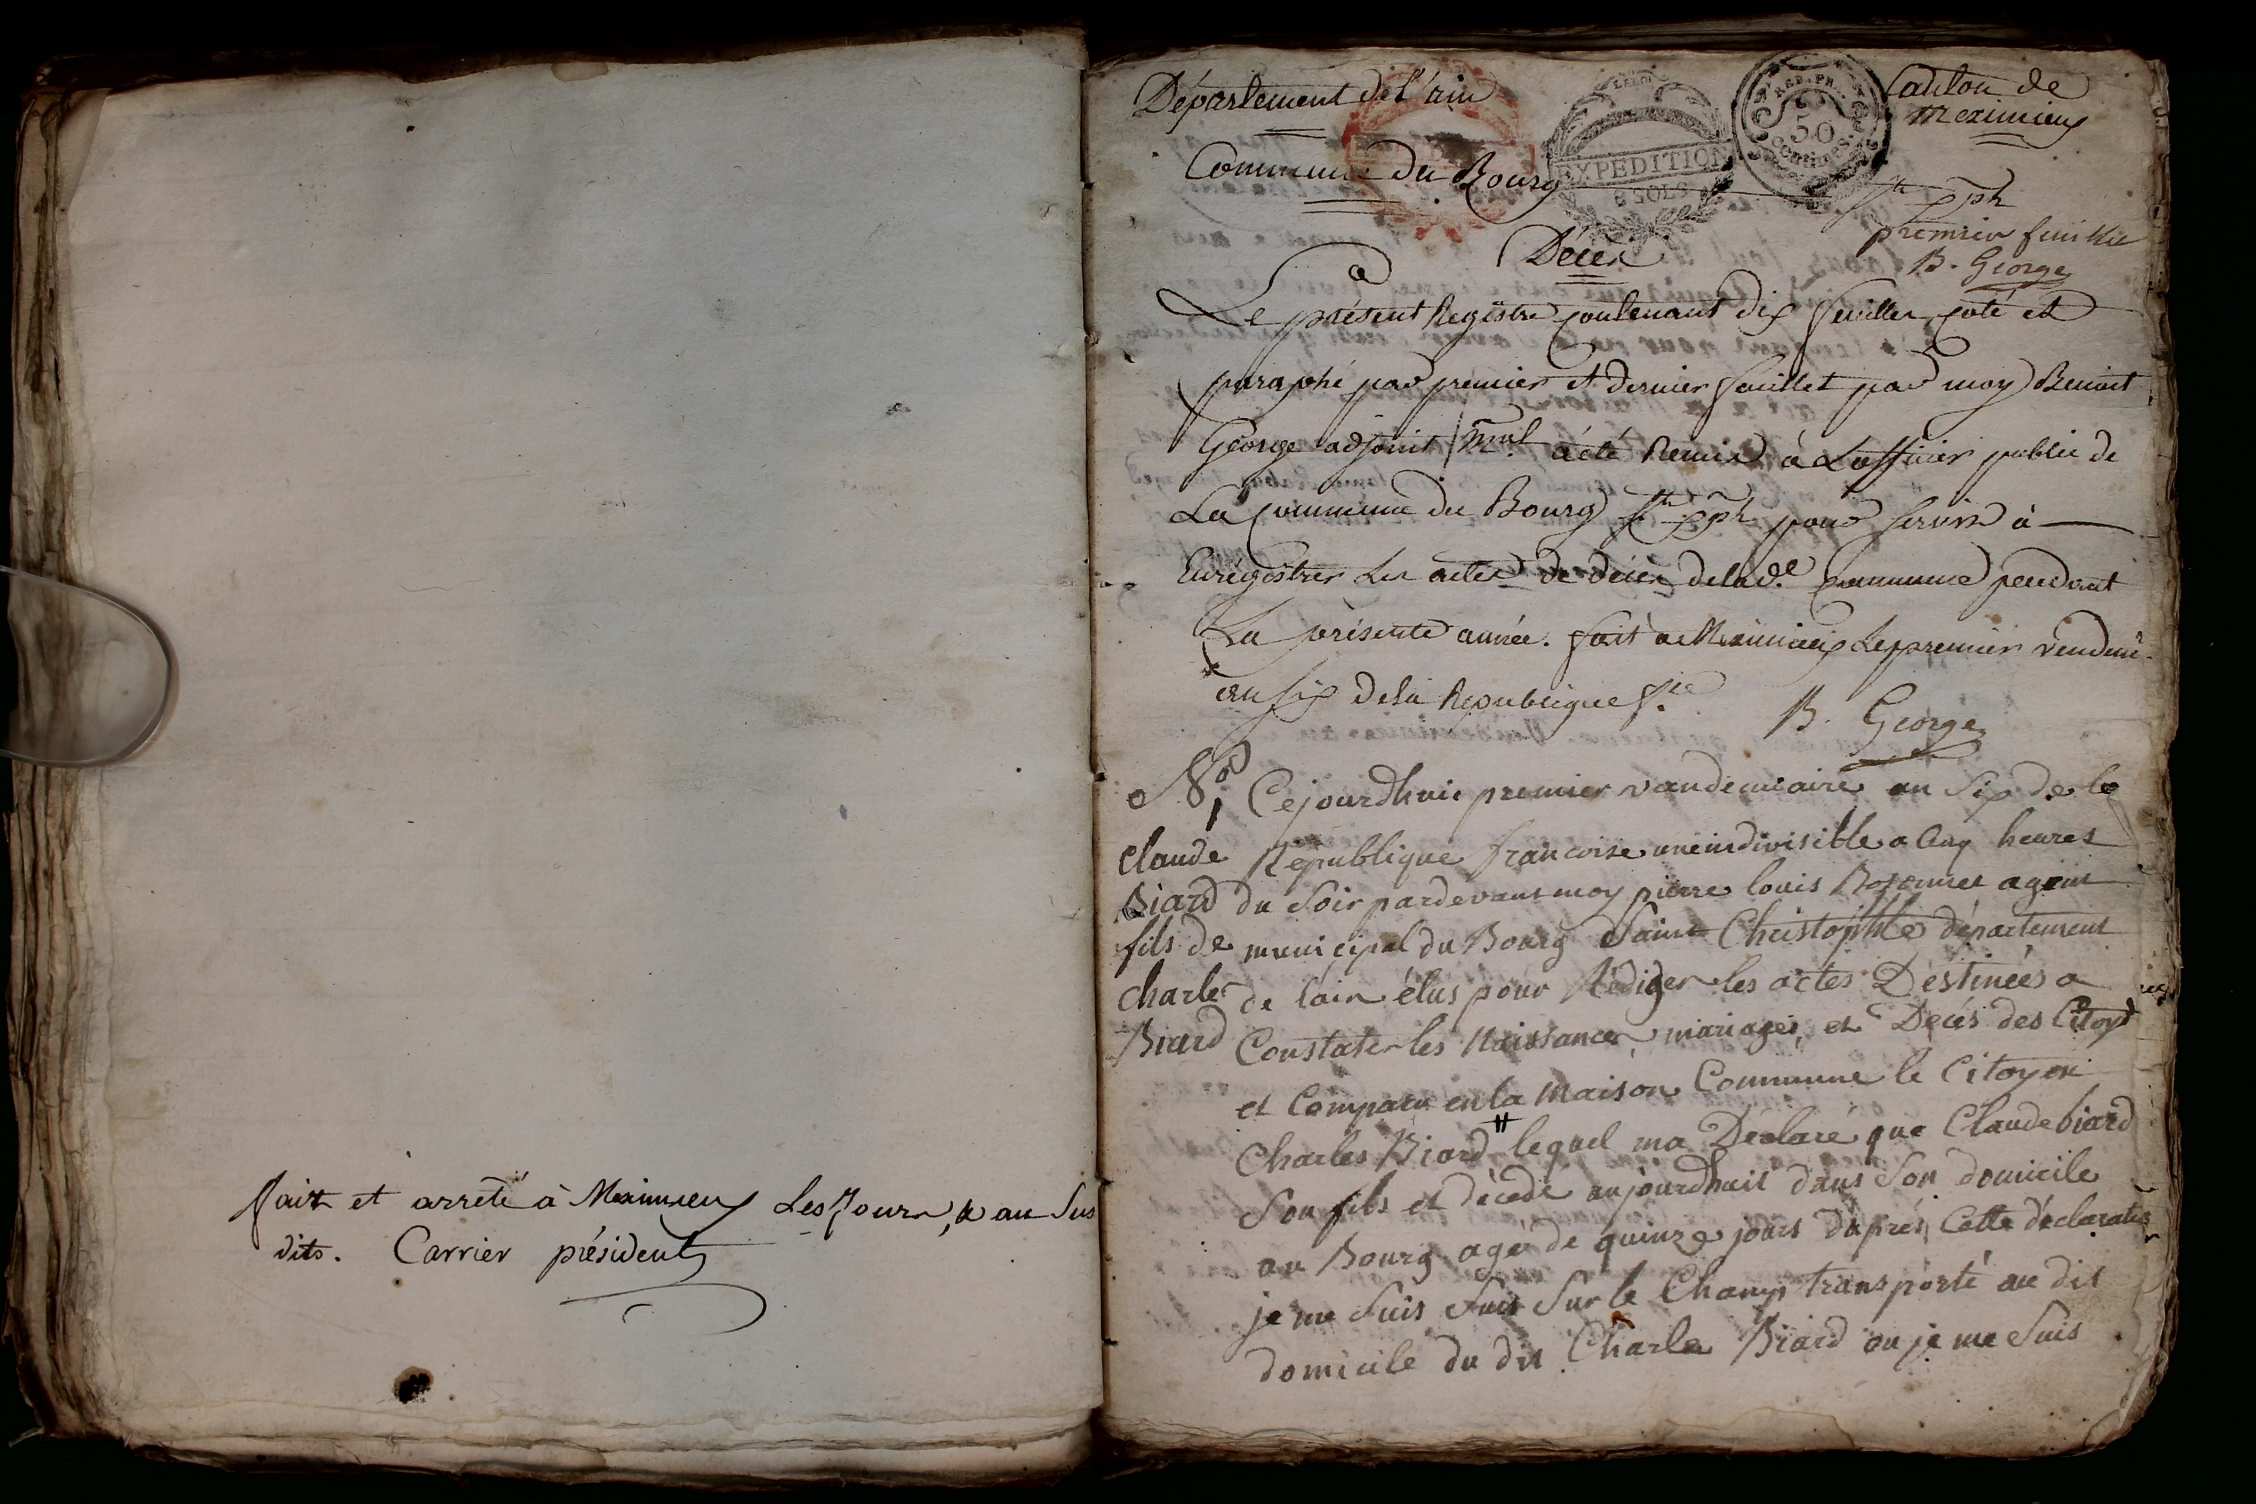 fait et arreté à Meximieux Les Jour, & an sus
dits. Carrier président
Département de l'ain
Canton de
Meximieux
Commune du Bourg
EXPEDITION
8 SOLS
REP. FR.
50
Centimes
St Xph
premier feuillet
B. George
Décès
Le présent Registre contenant dix feuilles coté et
paraphé par premier et dernier feuillet par moy Benoit
George adjoint mal a été Remis à L'officier public de
La Commune du Bourg St Xph pour servir à
Enrégistrer Les actes de décès delade commune pendant
La présente année. fait a Meximieux Le premier vendemre
an six dela Republique fse
B. George
No 1 Cejourdhuie premier vandemiaire an Six de la
Claude Republique francoise une indivisible a Cinq heures
Biard du Soir pardevant moy pierre louis agent
fils de municipal du Bourg Saint Christophle département
Charle de lain élus pour Rédiger les actes Destinées a
Biard Constater les Naissances, mariages, et Décés des Citoyd
et Comparu en la Maison Commune le Citoyen
Charles Biard lequel ma Déclaré que Claude biard
Son fils et décédé aujourdhuit dans Son domicile
au Bourg agé de quinze jours daprés Cette déclaration
je me Suis Suis Sur le Champ transporté au dit
domicile du dit Charle Biard ou je me Suis